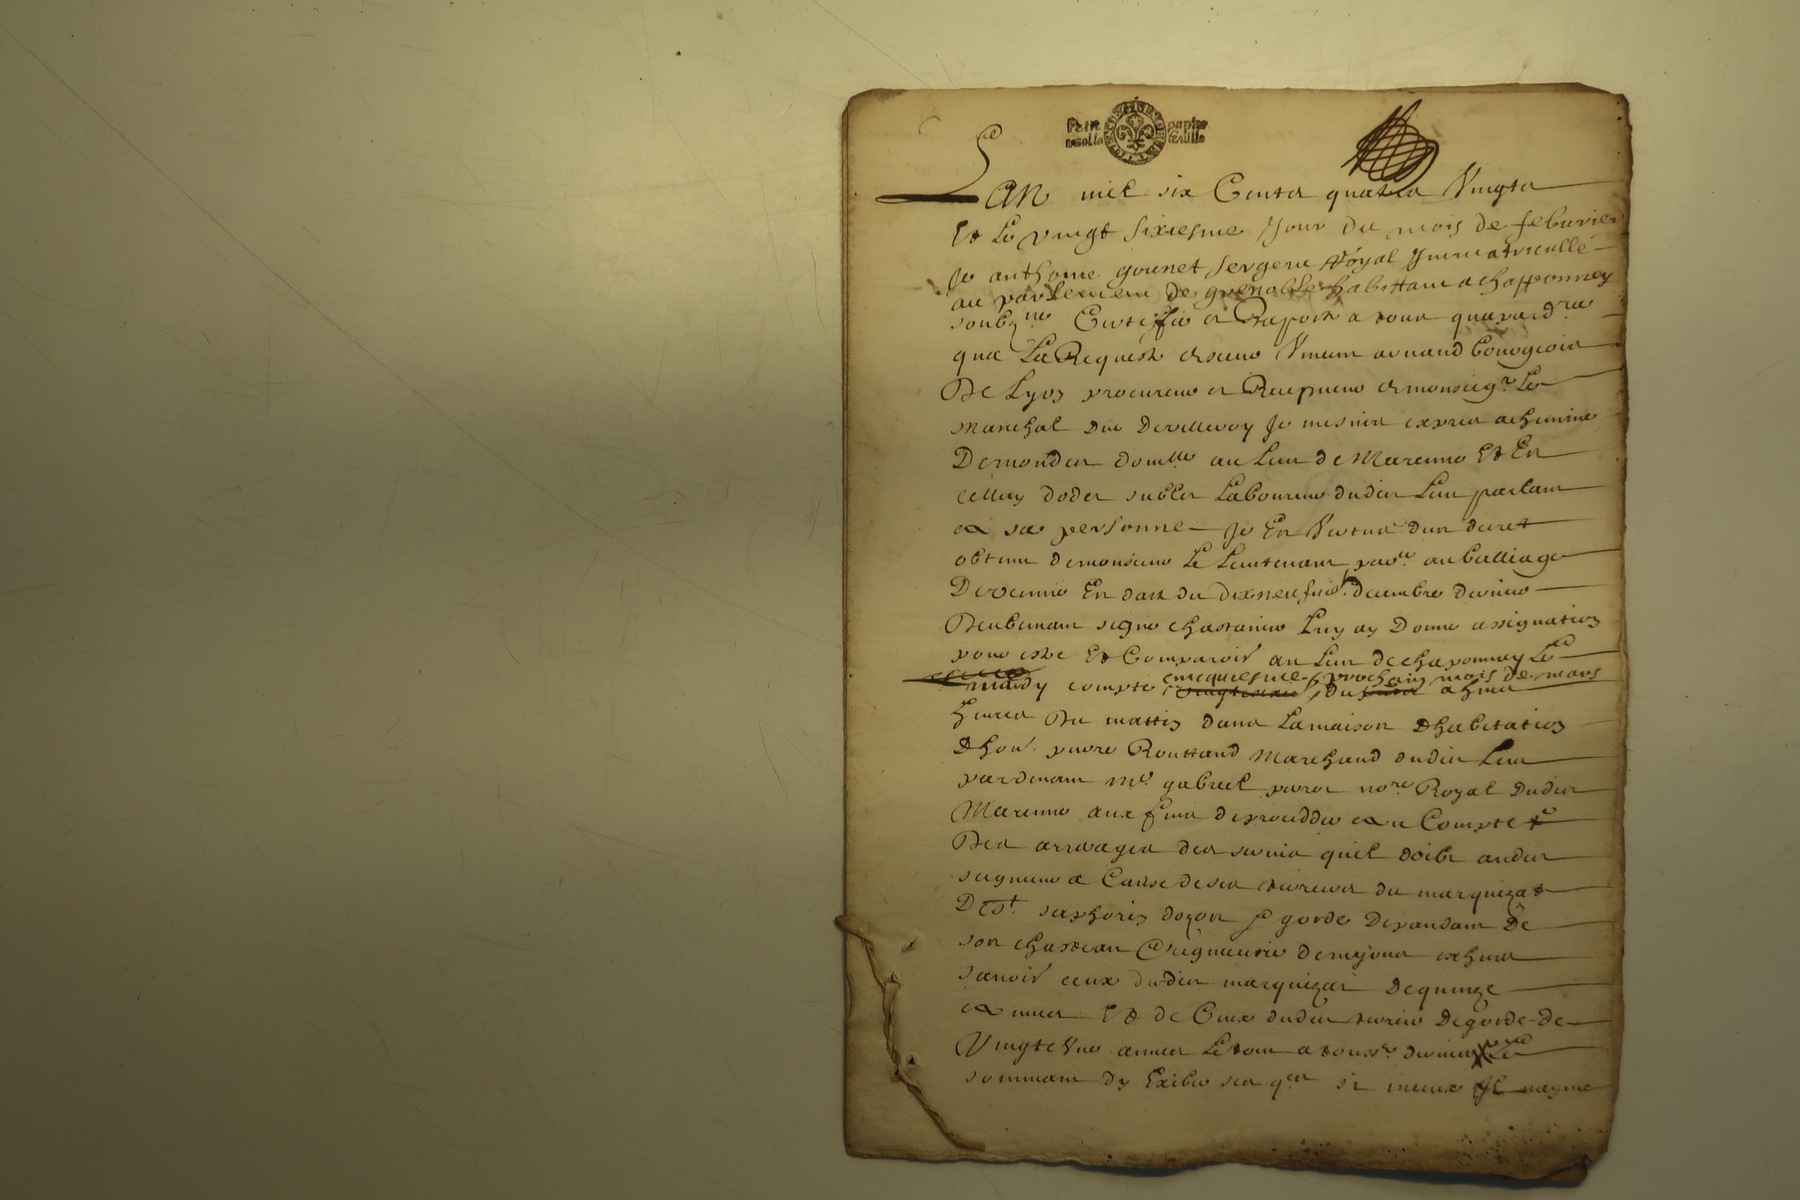 Petit papier
feuille
Lan mil six Cents quatre Vingts
Et Le vingt sixiesme Jour du mois de febvrier
Je anthoine gounet sergent Royal Immatricullé
au parlement de grenoble habittant a chapponnay
soubzne Certiffie et Raporte a tous quapardra
qua La Requeste de sieur arnaud bourgeois
De Lyon procureur et Recepveur de monseigr Le
Mareshal duc Devilleroy Je mesuis expres achemine
De mon dit domlle au lieu de Marenne Et En
celluy laboureur dudit Lieu parlant
a sa personne Je En Vertu dun decret
obtenu de monsieur Le Lieutenant au balliage
De vienne En datte du dixneufie decembre dernier
Deubement signe Luy ay Donne assignation
pour estre Et Comparoir au Lieu de chaponnay Le
mardy compte cinquiesme prochain mois de mars
du a huict
heures Du mattin dans La maison dhabitation
dhon. Marchand dudit Lieu
pardevant Me gabriel nore Royal Dudit
Marenne aux fins de proceder a u Compte
Des arrerages des servis quil doibt audit
seigneur a Cause de ses du marquizat
De St. saphorin dozon gorde Dependant De
son chasteau seigneurie de myons
scavoir ceux dudit marquizat De quinze
annees Et de Ceux dudit gorde de
Vingt Une annees Le tout a derniers
sommant dy Exiber ses si mieux Il nayme